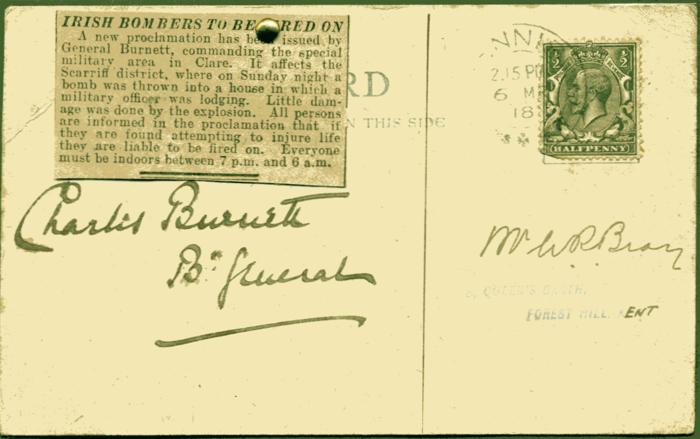 IRISH BOMBERS TO BE FIRED ON
A new proclamation has been issued by
General Burnett, commanding the special
military area in Clare. It affects the
Scarriff district, where on Sunday night a
bomb was thrown into a house in which a
military officer was lodging. Little dam-
age was done by the explosion. All persons
are informed in the proclamation that if
they are found attempting to injure life
they are liable to be fired on. Everyone
must be indoors between 7 p.m. and 6 a.m.
RD
N THIS SIDE
Charles Burnett
Br General
NNI
2.15 P
6 M
18
½ ½
HALFPENNY
Mr W.R. Bray
QUEEN'S
FOREST HILL, KENT